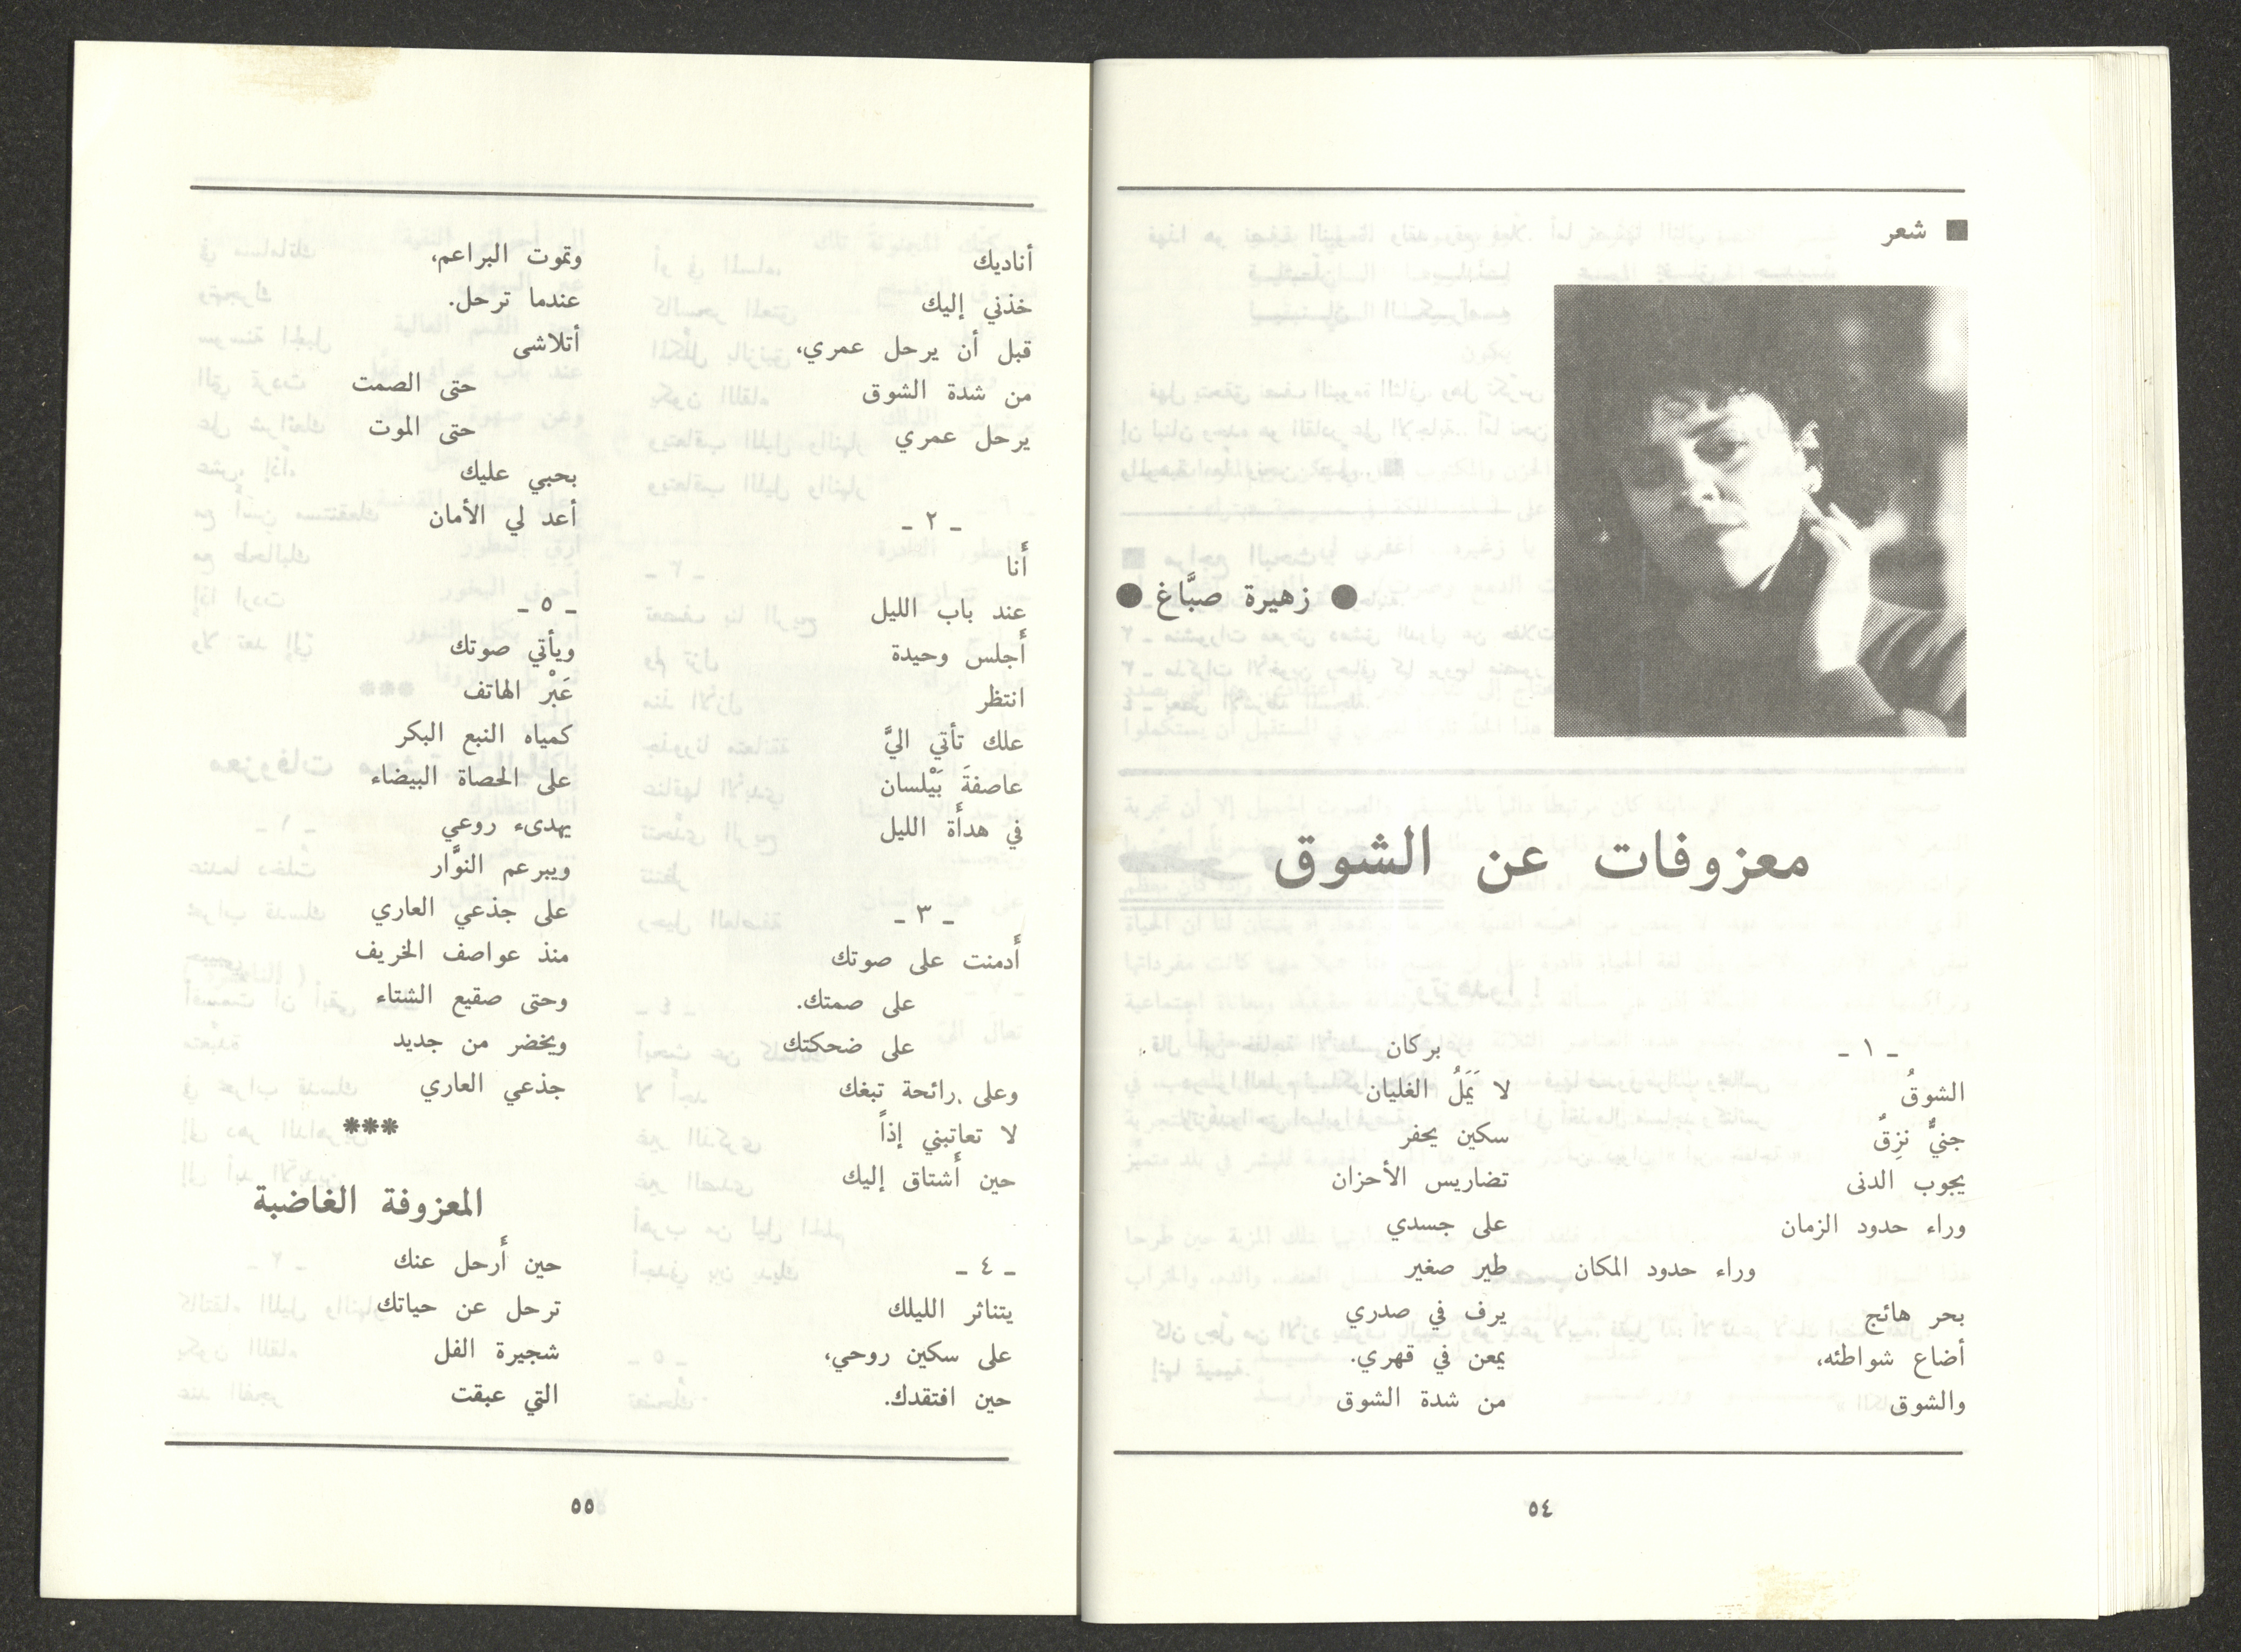 ■ شعر
● زهيرة صبَّاغ ●
معزوفات عن الشوق
ـ ١ ـ
الشوقُ
جنيٌّ نزِقٌ
يجوب الدنى
وراء حدود الزمان
وراء حدود المكان
بحر هائج
أضاع شواطئه،
والشوق
بركان
لا يَمَلُ الغليان
سكين يحفر
تضاريس الأحزان
على جسدي
طير صغير
يرف في صدري
يمعن في قهري.
من شدة الشوق
٥٤
أناديك
خذني إليك
قبل أن يرحل عمري،
من شدة الشوق
يرحل عمري
ـ ٢ ـ
أَنا
عند باب الليل
أَجلس وحيدة
انتظر
علك تأتي اليَّ
عاصفةَ بَيْلسان
في هدأَة الليل
ـ ٣ ـ
أَدمنت على صوتك
على صمتك.
على ضحكتك
وعلى رائحة تبغك
لا تعاتبني إذاً
حين أَشتاق إليك
ـ ٤ ـ
يتناثر الليلك
على سكين روحي،
حين افتقدك.
وتموت البراعم،
عندما ترحل.
أتلاشى
حتى الصمت
حتى الموت
بحبي عليك
أعد لي الأمان
ـ ٥ ـ
ويأتي صوتك
عَبْر الهاتف
كمياه النبع البكر
على الحصاة البيضاء
يهدىء روعي
ويبرعم النوَّار
على جذعي العاري
منذ عواصف الخريف
وحتى صقيع الشتاء
ويخضر من جديد
جذعي العاري
***
المعزوفة الغاضبة
حين أَرحل عنك
ترحل عن حياتك
شجيرة الفل
التي عبقت
٥٥